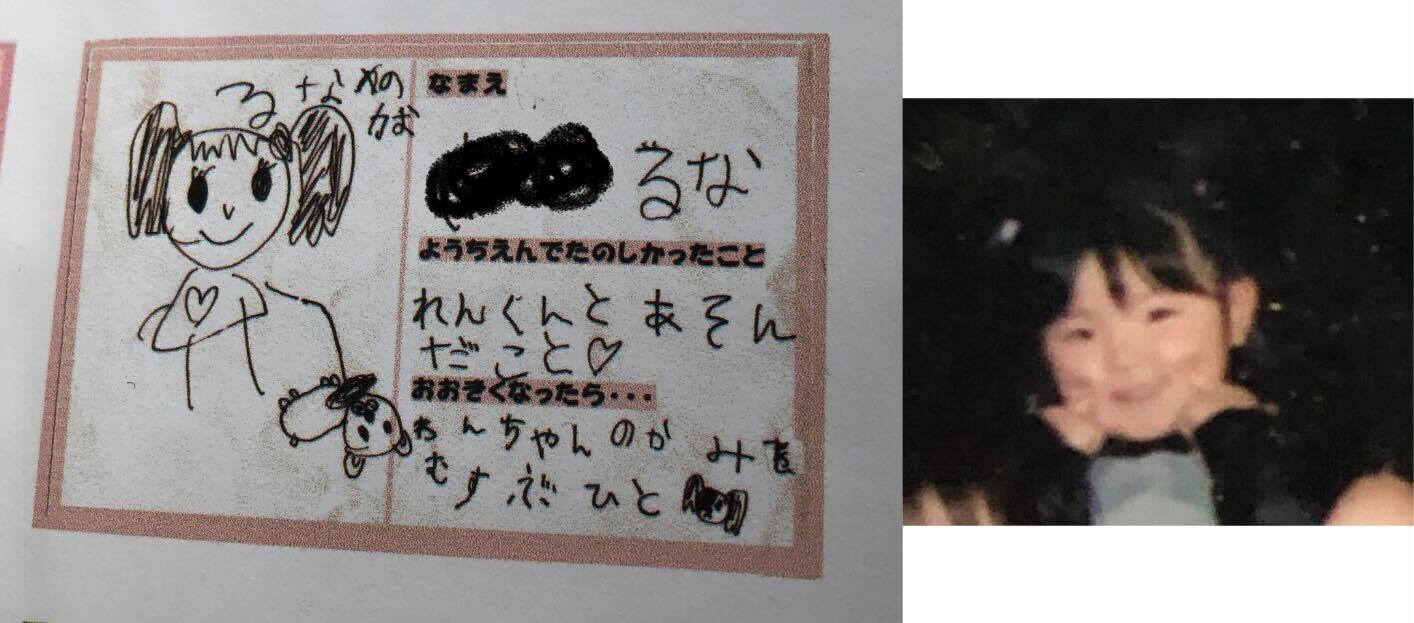 るな の
かお
なまえ
るな
ようちえんでたのしかったこと
れんくんと あそん
だこと♡
おおきくなったら・・・
わんちゃんのか みを
むすぶ ひと